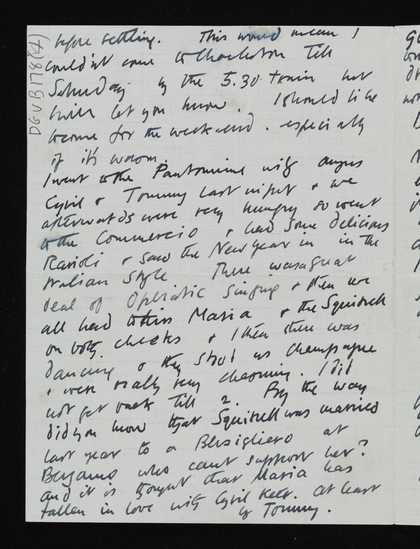 DGVB178(4)
before settling. This would mean I
couldn't come to Charleston till
Saturday by the 5.30 train but
will let you know. I should like
to come for the week-end. especially
if it's warm.
I went to the Pantomime with Angus
Cyril & Tommy last night & we
afterwards were very hungry so went
to the Commercio & had some delicious
Ravioli & saw the New Year in in the
Italian style There was a great
deal of Operatic Singing & then we
all had to kiss Maria & the Squirrell
on both cheeks & then there was
dancing & they stood us champagne
& were really very charming. I did
not get back till 2. By the way
did you know that Squirrell was married
last year to a Bersigliero at
Bergamo who cant support her?
and it is thought that Maria has
fallen in love with Cyril Kelt. at least
by Tommy.